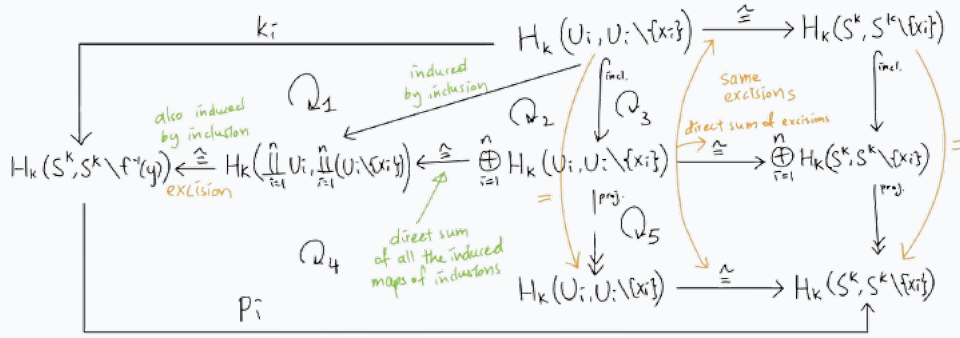 kᵢ
Hₖ(Uᵢ, Uᵢ\{xᵢ}) ≅ Hₖ(Sᵏ, Sᵏ\{xᵢ})
1
induced
by inclusion
incl.
same
excisions
incl.
also induced
by inclusion
2
3
direct sum of excisions
Hₖ(Sᵏ, Sᵏ\f⁻¹(y)) ≅ Hₖ(∐ⁿᵢ₌₁ Uᵢ, ∐ⁿᵢ₌₁(Uᵢ\{xᵢ})) ≅ ⊕ⁿᵢ₌₁ Hₖ(Uᵢ, Uᵢ\{xᵢ}) ≅ ⊕ⁿᵢ₌₁ Hₖ(Sᵏ, Sᵏ\{xᵢ})
excision
= =
proj.
proj.
4
direct sum
of all the induced
maps of inclusions
5
Hₖ(Uᵢ, Uᵢ\{xᵢ}) ≅ Hₖ(Sᵏ, Sᵏ\{xᵢ})
pᵢ